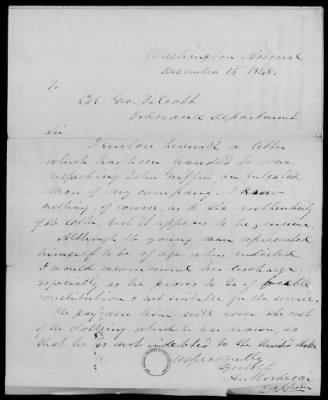 Washington Arsenal
December 15 1848.
To
Col. Geo. Talcott
Ordnance Department
Sir
I enclose herewith a letter
which has been handed to me
respecting John Griffin an enlisted
man of my company. I know
nothing, of course, as to the authenticity
of the letter, but it appears to be genuine.
Although the young man represented
himself to be of age when enlisted
I would recommend his discharge,
especially as he proves to be of feeble
constitution & not suitable for the service.
The pay due him will cover the cost
of the clothing which he has drawn, so
that he is not indebted to the United States
Respectfully
A. Mordecai